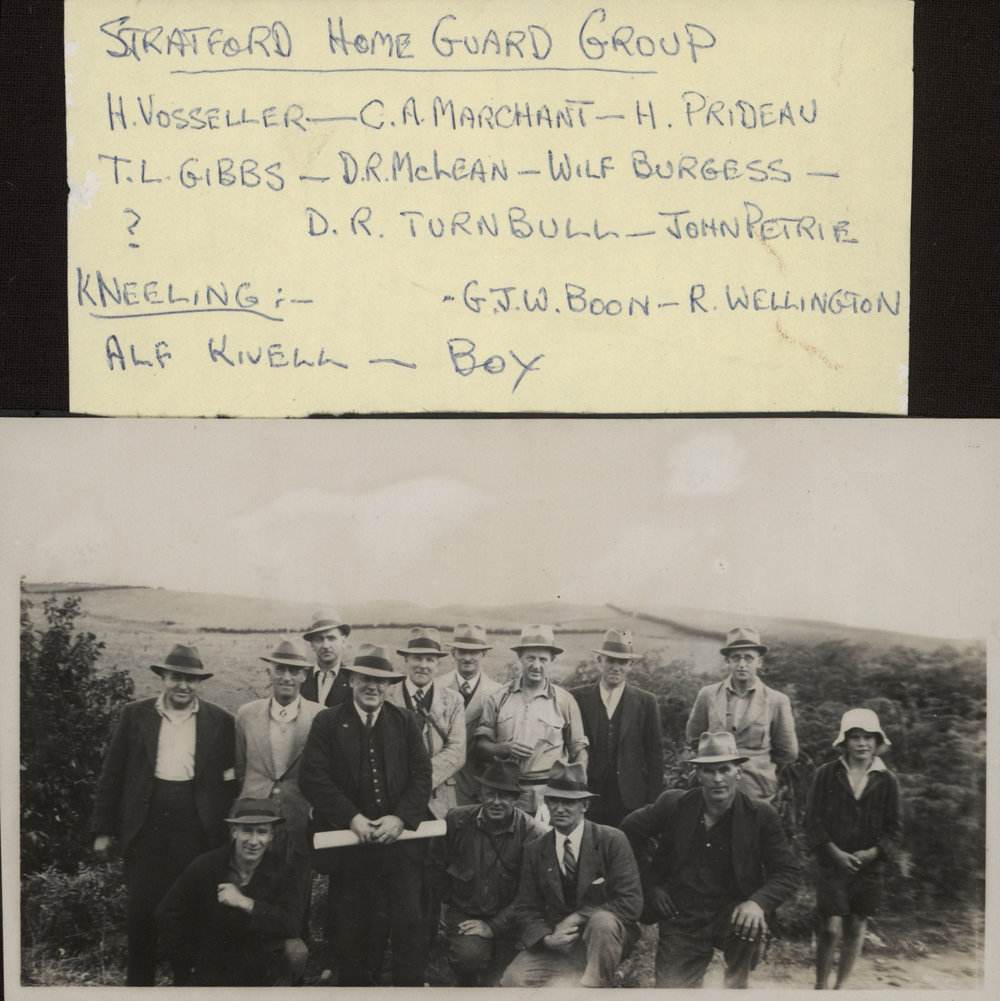 STRATFORD HOME GUARD GROUP
H. VOSSELLER — C. A. MARCHANT — H. PRIDEAU
T. L. GIBBS — D. R. McLEAN — WILF BURGESS —
? D. R. TURNBULL — JOHN PETRIE
KNEELING :- - G. J. W. BOON — R. WELLINGTON
ALF KIVELL — BOY